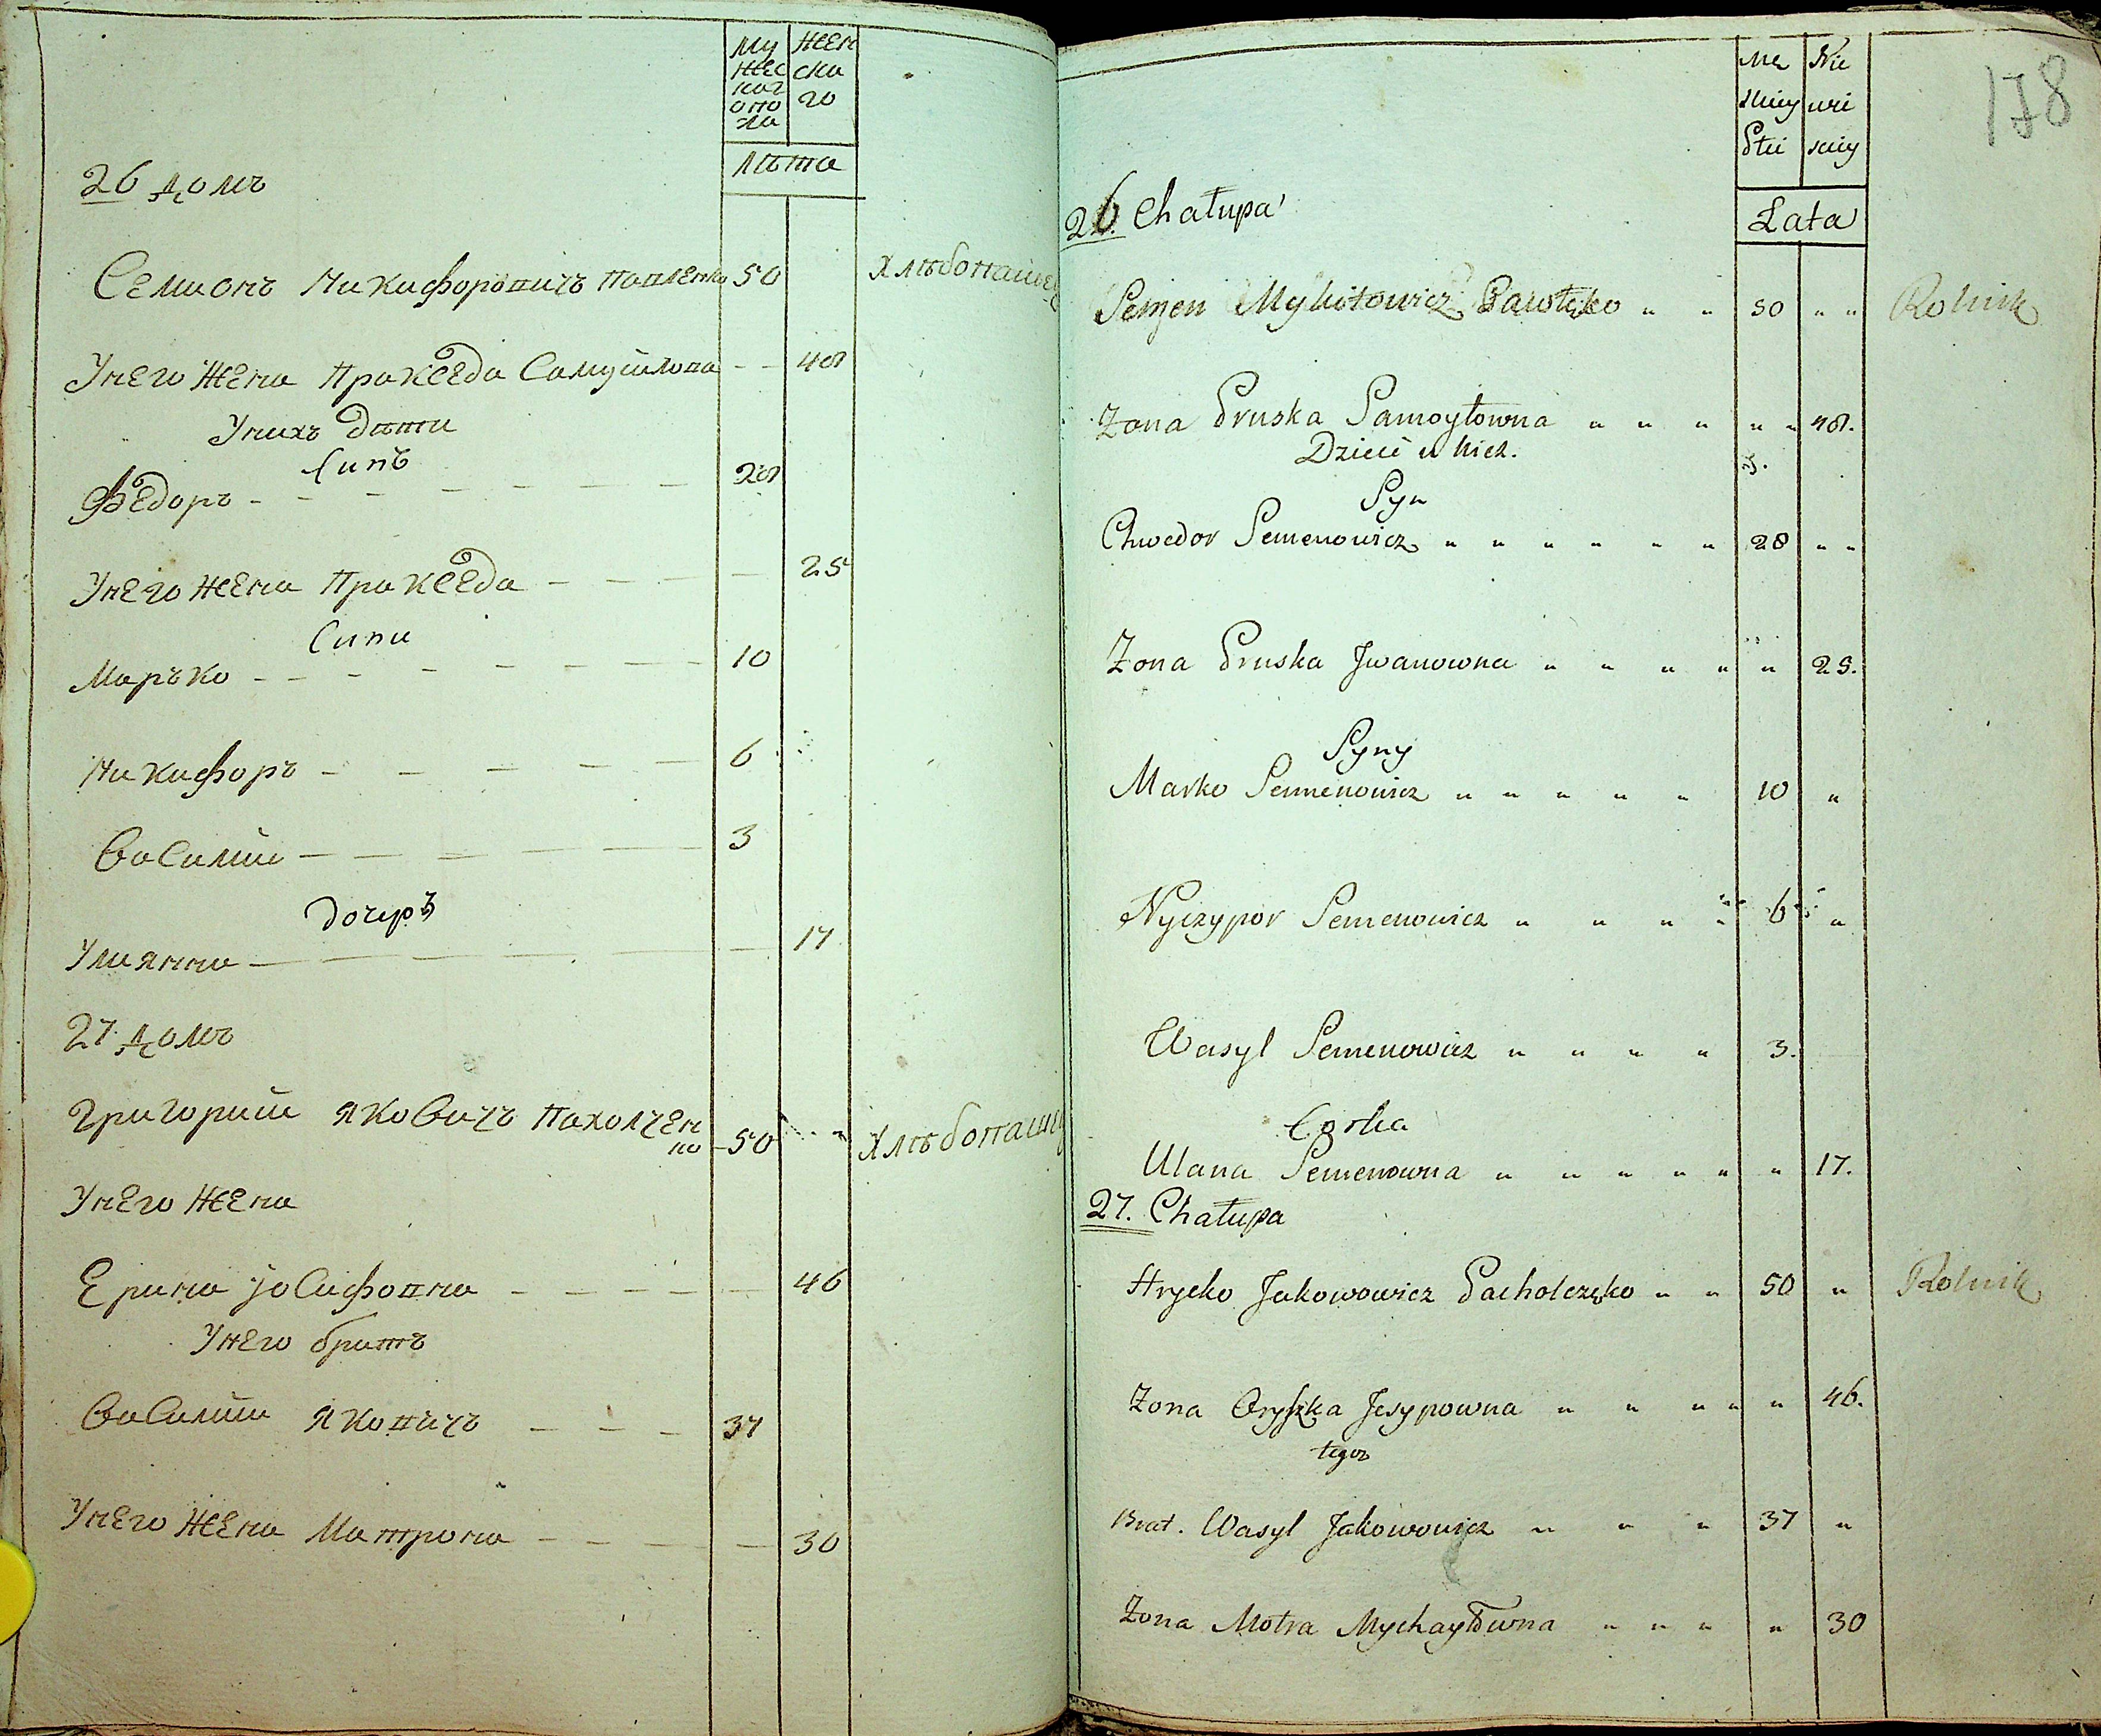 Му Жен
жес ска
ког го
опо
ла
лѣта
26 домъ
Семионъ Никифоровичъ Павленко 50 Хлѣбопашец
Унего жена Пракседа Самуилова - - 48
Унихъ дѣти
Синъ
Федоръ - - - - - - - 28
Унего жена Пракседа - - - - 25
Сини
Маръко - - - - - - - 10
Никифоръ - - - - - 6
Василий - - - - - - 3
дочеръ
Улиянна - - - - - - 17
27 домъ
Григорий Яковичъ Пахолчен
ко - 50 " Хлѣбопашец
Унего жена
Ерина Іосифовна - - - - - 46
Унего братъ
Василий Яковичъ - - - 37
Унего жена Матрона - - - - 30
178
Mę Nie
skiey wie
Płci sciey
Lata
26. Chałupa
Semen Mykitowicz Pawlęko " " 50 " " Rolnik
Zona Pruska Samoyłowna " " " " " 48.
Dzieci u nich.
Syn
Chwedor Semenowicz " " " " " " 28 " "
Zona Pruska Jwanowna " " " " " 25.
Syny
Marko Semenowicz " " " " " 10 "
Nyczypor Semenowicz " " " " 6 "
Wasyl Semenowicz " " " " 3.
Corka
Ulana Semenowna " " " " " " 17.
27. Chałupa
Hrycko Jakowowicz Pacholczęko " " 50 " Rolnik
Zona Oryszka Jesypowna " " " " " 46.
tegoz
Brat. Wasyl Jakowowicz " " " 37 "
Zona Motra Mychayłowna " " " " 30